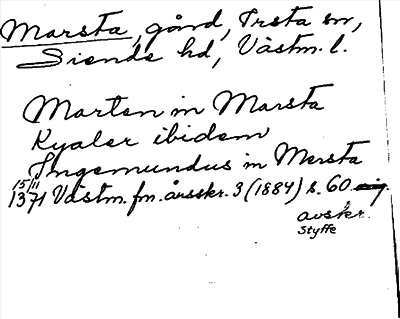 Marsta, gård, Irsta sn,
Siende hd, Västm. l.
Marten in Marsta
Kyaler ibidem
Ingemundus in Mersta
15/11
1371 Västm. fm. årsskr. 3 (1884) s. 60
avskr.
Styffe